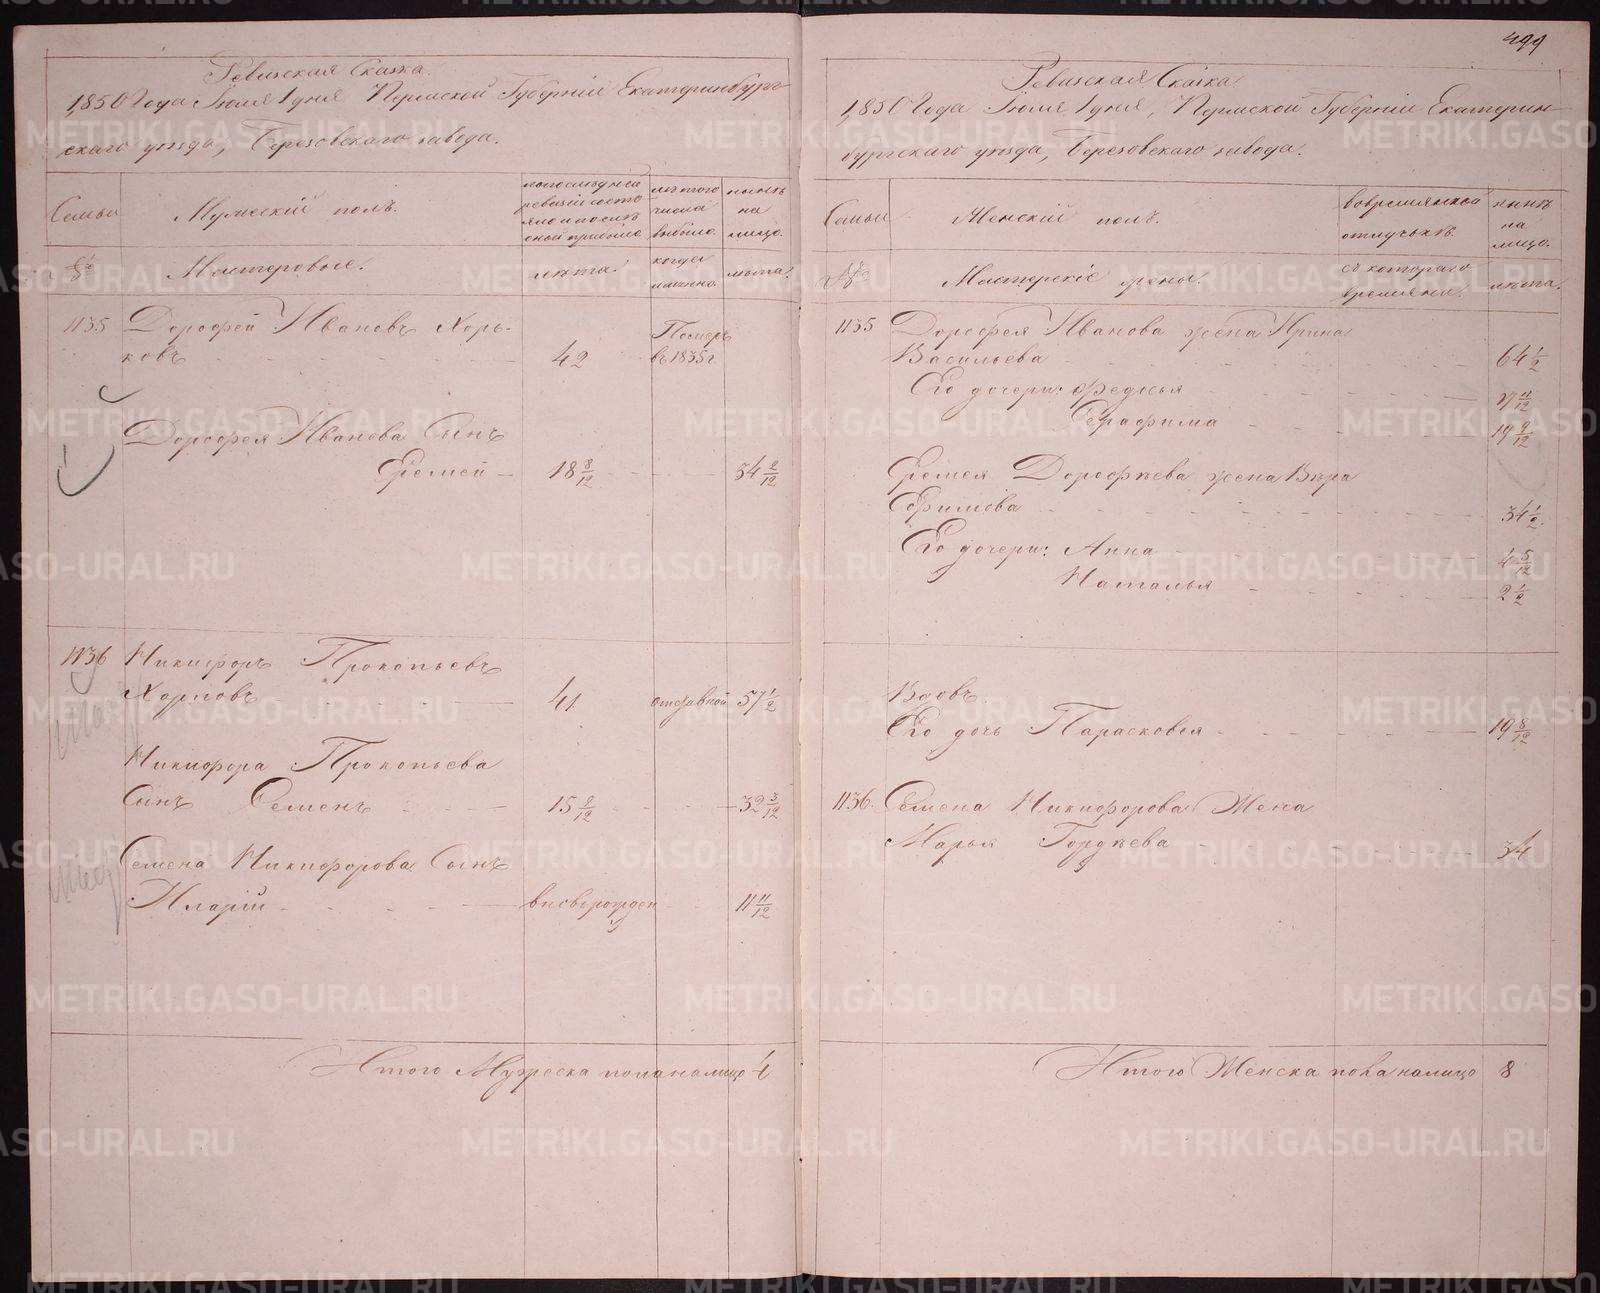 Ревизская Сказка.
1850 Года Июля 1 дня Пермской Губернии Екатеринбург
скаго уезда, Березовскаго завода.
Семьи
Мужеский полъ.
по последней
ревизии состо
яло и после
оной прибыло
изъ того
числа
выбыло
ныне
на
лицо.
№
Мастеровые.
лета.
когда
именно.
лета.
1135
Дорофей Ивановъ Хорь-
ковъ
42
Померъ
въ 1835 г
Дорофея Иванова Сынъ
Еремей
18 8/12
34 2/12
1136
Никифоръ Прокопьевъ
Хорковъ
41
отставной
57 1/2
Никифора Прокопьева
Сынъ Семенъ
15 9/12
32 3/12
Семена Никифорова Сынъ
Иларий
вновьрожден
11 11/12
Итого Мужеска пола налицо 4
499
Ревизская Сказка.
1850 Года Июля 1 дня, Пермской Губернии Екатерин
бургскаго уезда, Березовскаго завода.
Семьи
Женский полъ.
во временной
отлучькъ.
ныне
на
лицо.
№
Мастерские жены.
съ котораго
времяни.
лета.
1135
Дорофея Иванова жена Ирина
Васильева
64 1/2
Его дочери: Федосья
27 11/12
Серафима
19 9/12
Еремея Дорофеева жена Вера
Ефимова
34 1/2.
Его дочери: Анна
4 5/12
Наталья
2 1/2
Вдовъ.
Его дочь Парасковья
19 8/12
1136.
Семена Никифорова Жена
Марья Гордеева
34
Итого Женска пола налицо 8
METRIKI.GASO-URAL.RU